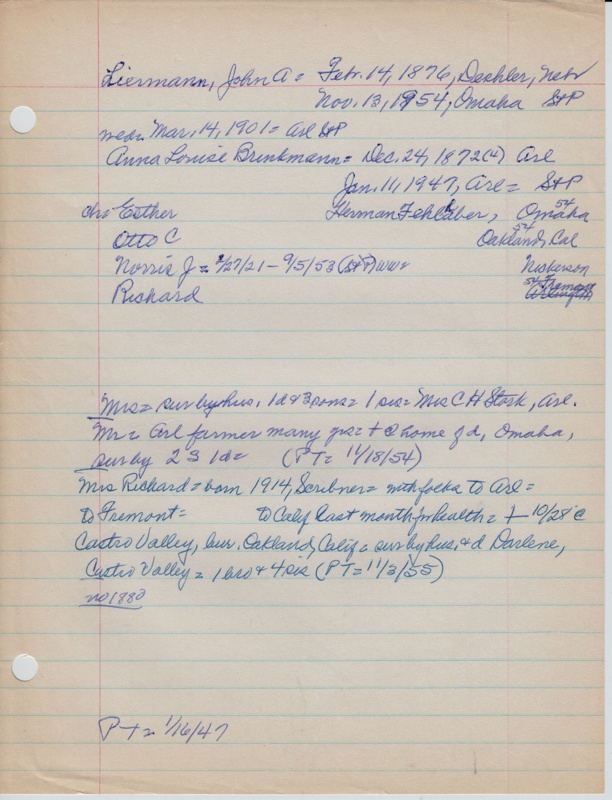 Liermann, John A = Feb. 14, 1876, Deshler, Nebr
Nov. 13, 1954, Omaha St P
wed = Mar. 14, 1901 = Arl St P
Anna Louise Brinkmann = Dec. 24, 1872(4) Arl
Jan. 11, 1947, Arl = St P
ch = Esther Herman Fehlaber, Omaha 54
Otto C Oakland, Cal 54
Norris J = 2/27/21 - 9/5/53 (St P) WW2 Nickerson
Richard 54 Fremont Arlington
Mrs = sur by hus, 1 d & 3 sons = 1 sis = Mrs C H Stork, Arl.
Mr = Arl farmer many yrs = + @ home of d, Omaha,
sur by 2 S 1 d = (PT = 11/18/54)
Mrs Richard = born 1914, Scribner = with folks to Arl =
to Fremont = to Calif last month for health = + 10/28 @
Castro Valley, bur. Oakland, Calif = sur by hus, & d Darlene,
Castro Valley = 1 bro & 4 sis (PT = 11/3/55)
no 1880
PT = 1/16/47